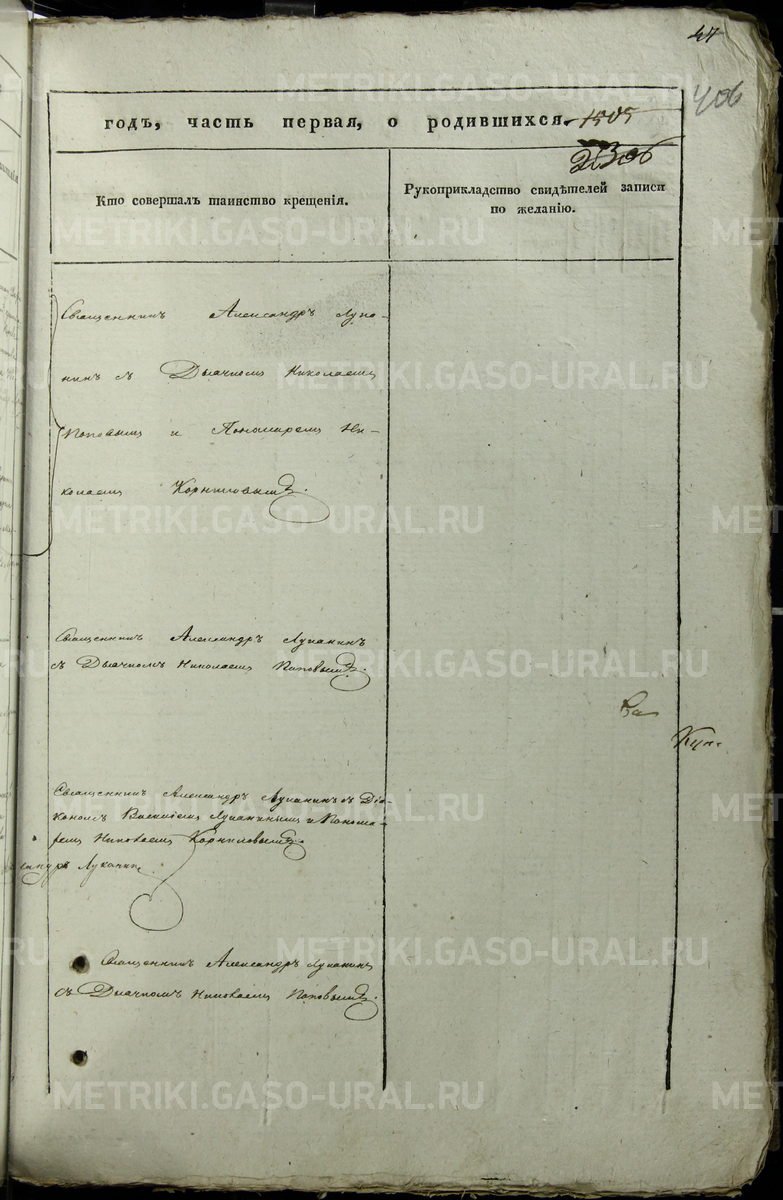 47
406
годъ, часть первая, о родившихся.
1505
Кто совершалъ таинство крещенія.
Рукоприкладство свидѣтелей записи
по желанію.
Священникъ Александръ Лука-
нинъ съ Дьячкомъ Николаемъ
Поповымъ и Пономаремъ Ни-
колаемъ Корниловымъ.
Священникъ Александръ Луканинъ
съ Дьячкомъ Николаемъ Поповымъ.
Священникъ Александръ Луканинъ съ Діа-
кономъ Василіемъ Луканинымъ и Понома-
ремъ Николаемъ Корниловымъ.
Священникъ Александръ Луканинъ
съ Дьячкомъ Николаемъ Поповымъ.
METRIKI.GASO-URAL.RU